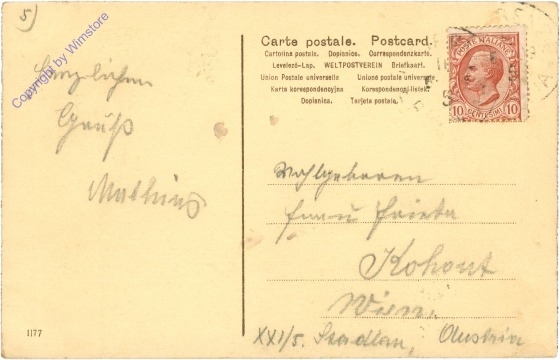 5)
Copyright by Wimstore
Herzlichen
Gruß
Mathias
1177
Carte postale. Postcard.
Cartolina postale. Dopisnice. Correspondenzkarte.
Levelező-Lap. WELTPOSTVEREIN Briefkaart.
Union Postale universelle Unione postale universelle
Karta korespondencyjna Korespondencni listek.
Dopisnica. Tarjeta postale.
POSTE ITALIANE
10 CENTESIMI 10
Wohlgeboren
Frau Frieda
Kohout
Wien
XXI/5. Stadlau, Austria